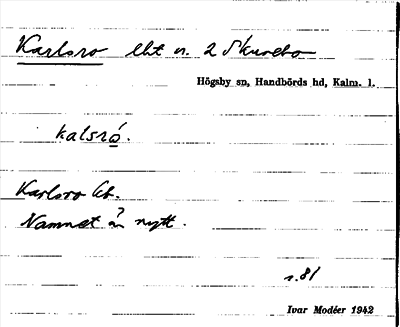 Karlsro lht n. 2 Skurebo
Högsby sn, Handbörds hd, Kalm. l.
kalsró.
Karlsro lht.
Namnet är nytt.
s. 81
Ivar Modéer 1942